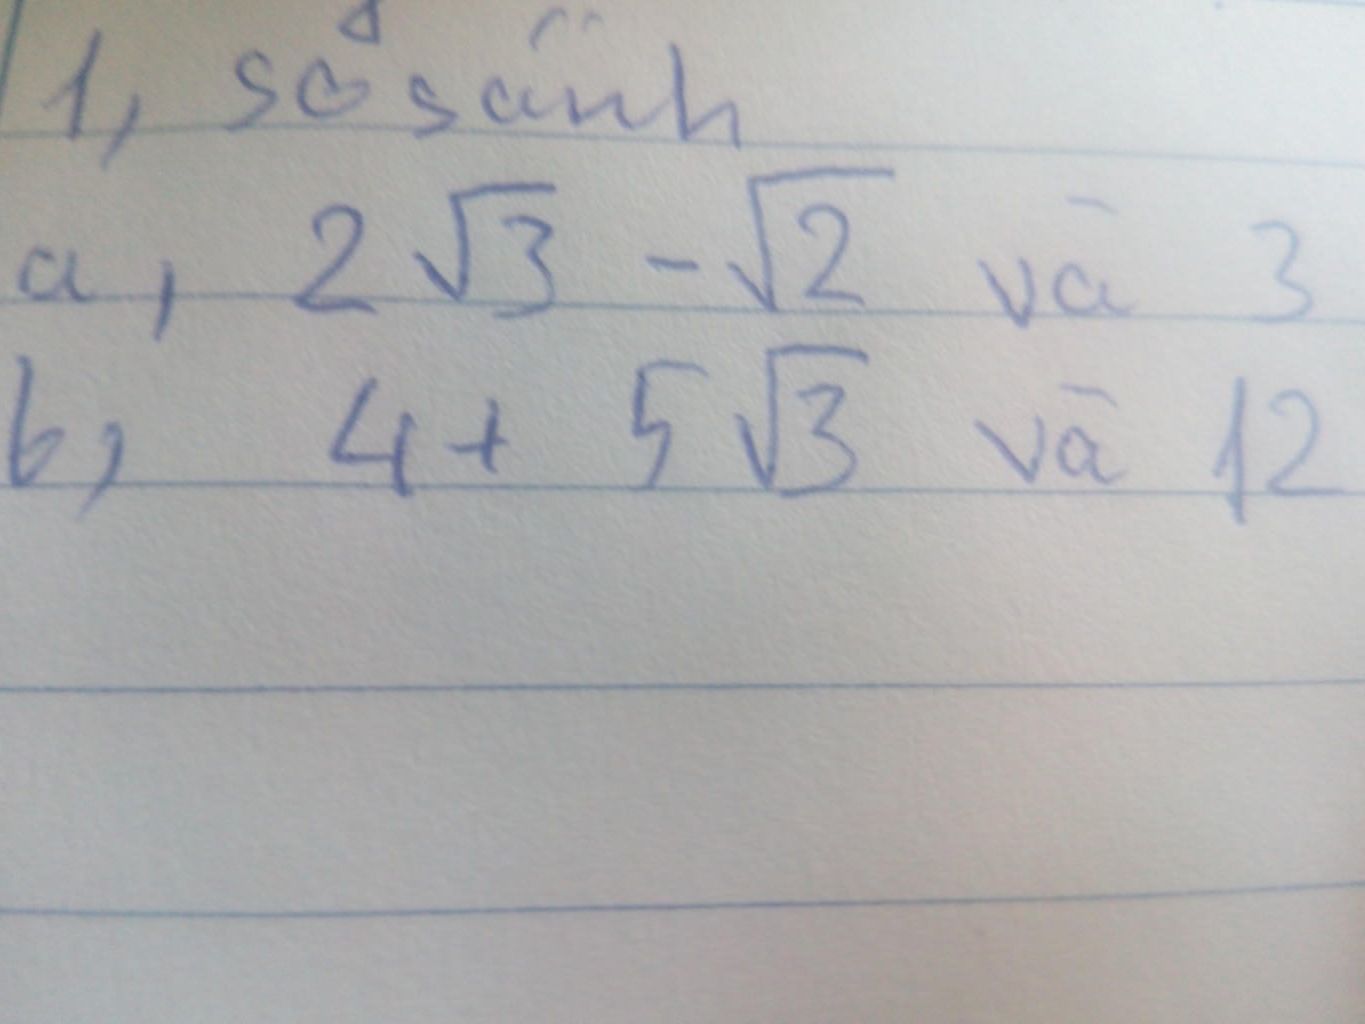 1, so sánh
a, 2√3 - √2 và 3
b, 4 + 5√3 và 12